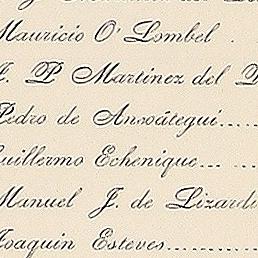 Mauricio O' Lombel .
J. P Martinez del
Pedro de Ansoátegui....
Guillermo Echenique... ...
Manuel J. de Lizardi
Joaquin Esteves..............